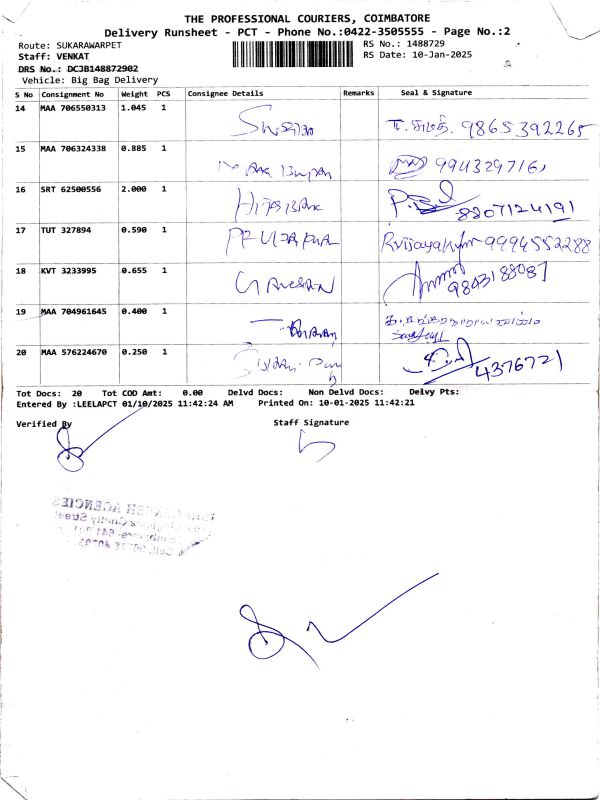 THE PROFESSIONAL COURIERS, COIMBATORE
Delivery Runsheet - PCT - Phone No.:0422-3505555 - Page No.:2
Route: SUKARAWARPET RS No.: 1488729
Staff: VENKAT RS Date: 10-Jan-2025
DRS No.: DCJB148872902
Vehicle: Big Bag Delivery
S No Consignment No Weight PCS Consignee Details Remarks Seal & Signature
14 MAA 706550313 1.045 1 9865392265
15 MAA 706324338 0.885 1
16 SRT 62500556 2.000 1 8807124191
17 TUT 327894 0.590 1 Rvijayakumar 9994552288
18 KVT 3233995 0.655 1 GANESAN 9843188087
19 MAA 704961645 0.400 1
20 MAA 576224670 0.250 1 4376721
Tot Docs: 20 Tot COD Amt: 0.00 Delvd Docs: Non Delvd Docs: Delvy Pts:
Entered By :LEELAPCT 01/10/2025 11:42:24 AM Printed On: 10-01-2025 11:42:21
Verified By Staff Signature